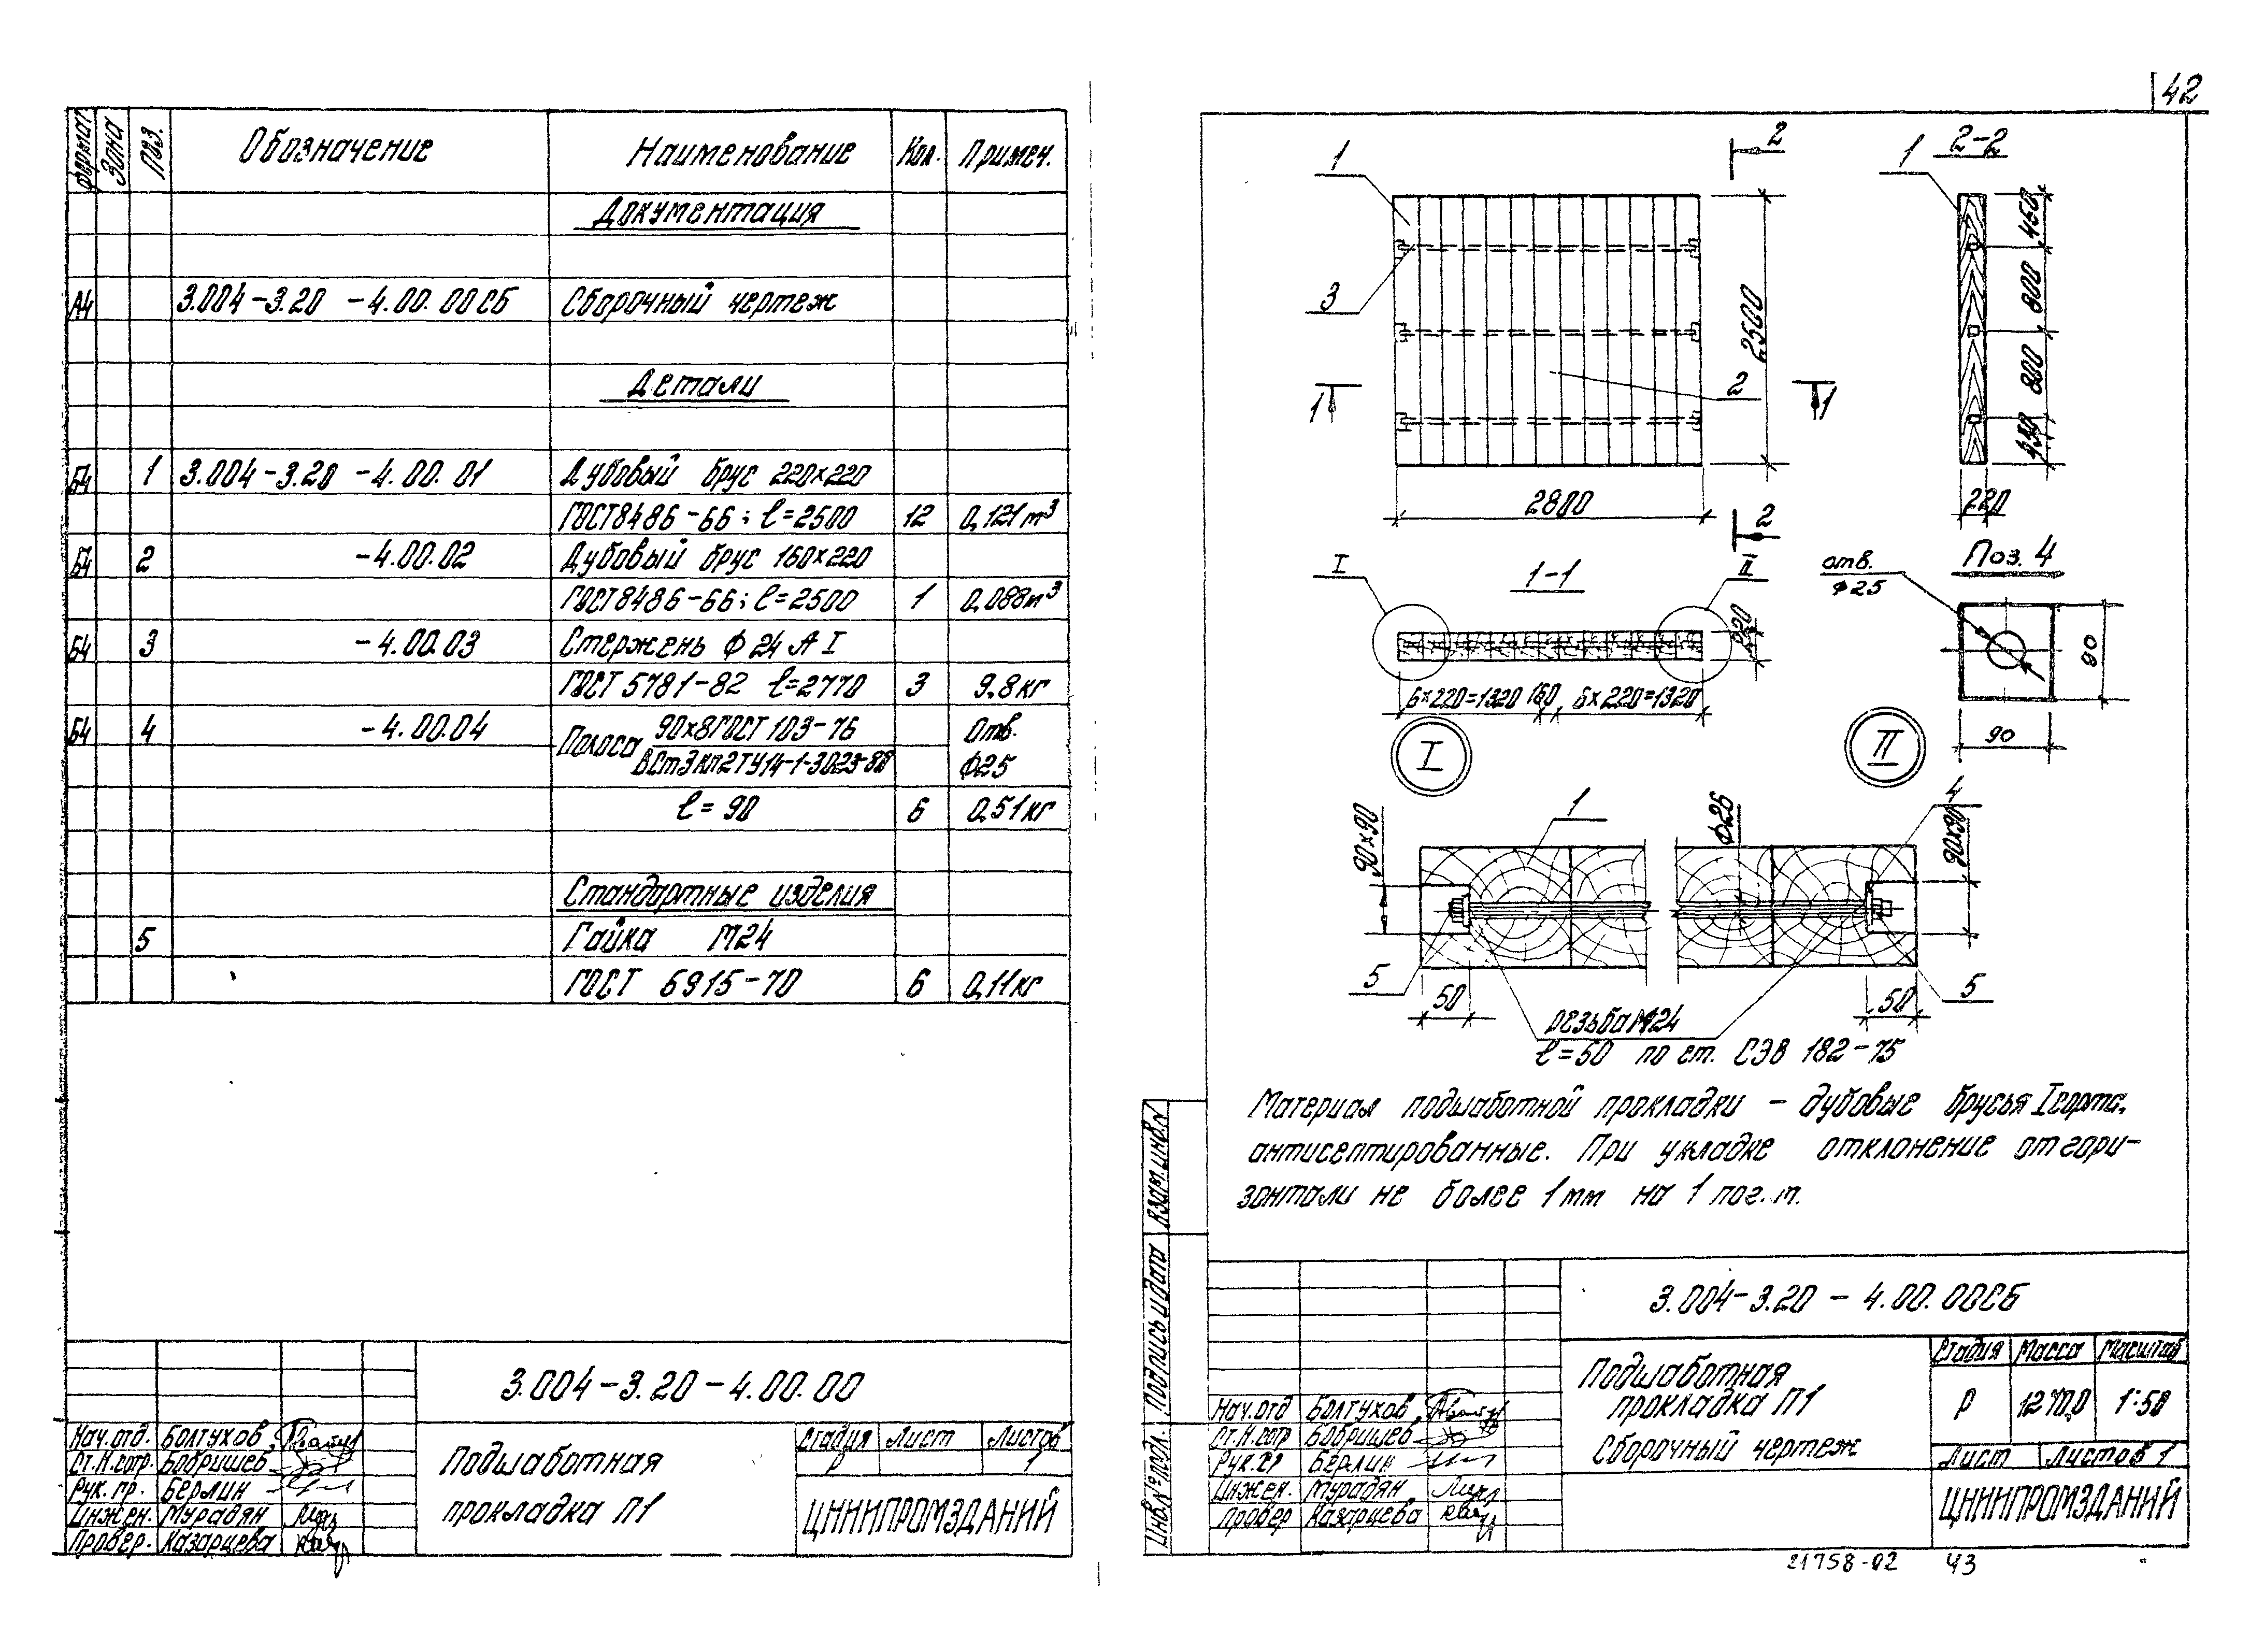 42
Формат
Зона
Поз.
Обозначение
Наименование
Кол.
Примеч.
Документация
А4 3.004-3.20 -4.00.00СБ Сборочный чертеж
Детали
Б4 1 3.004-3.20 -4.00.01 Дубовый брус 220×220
ГОСТ 8486-66; ℓ=2500 12 0,121м³
Б4 2 -4.00.02 Дубовый брус 160×220
ГОСТ 8486-66; ℓ=2500 1 0,088м³
Б4 3 -4.00.03 Стержень Ф24 А I
ГОСТ 5781-82 ℓ=2770 3 9,8кг
Б4 4 -4.00.04 Полоса 90×8 ГОСТ 103-76 Отв.
ВСт3кп2 ТУ14-1-3023-80 Ф25
ℓ=90 6 0,51кг
Стандартные изделия
5 Гайка М24
ГОСТ 5915-70 6 0,11кг
3.004-3.20-4.00.00
Нач.отд. Болтухов
Ст.н.сотр. Бобришев
Рук.гр. Берлин
Инжен. Мурадян
Провер. Казарцева
Подшаботная
прокладка П1
Стадия Лист Листов
Р 1
ЦНИИПРОМЗДАНИЙ
1
2
1
2-2
3
2500
450
800
800
450
2
1
1
2800
2
220
I
1-1
II
220
6×220=1320 160 6×220=1320
отв.
Ф25
Поз. 4
90
90
I
II
90×90
1
Ф26
4
90×90
5
50
50
5
резьба М24
ℓ=50 по ст. СЭВ 182-75
Материал подшаботной прокладки - дубовые брусья I сорта,
антисептированные. При укладке отклонение от гори-
зонтали не более 1мм на 1 пог.м.
Взам.инв.№
Подпись и дата
Инв.№ подл.
3.004-3.20 - 4.00.00СБ
Нач.отд Болтухов
Ст.н.сотр Бобришев
Рук.гр Берлин
Инжен. Мурадян
Провер Казарцева
Подшаботная
прокладка П1
Сборочный чертеж
Стадия Масса Масштаб
Р 1270,0 1:50
Лист Листов 1
ЦНИИПРОМЗДАНИЙ
21758-02 43